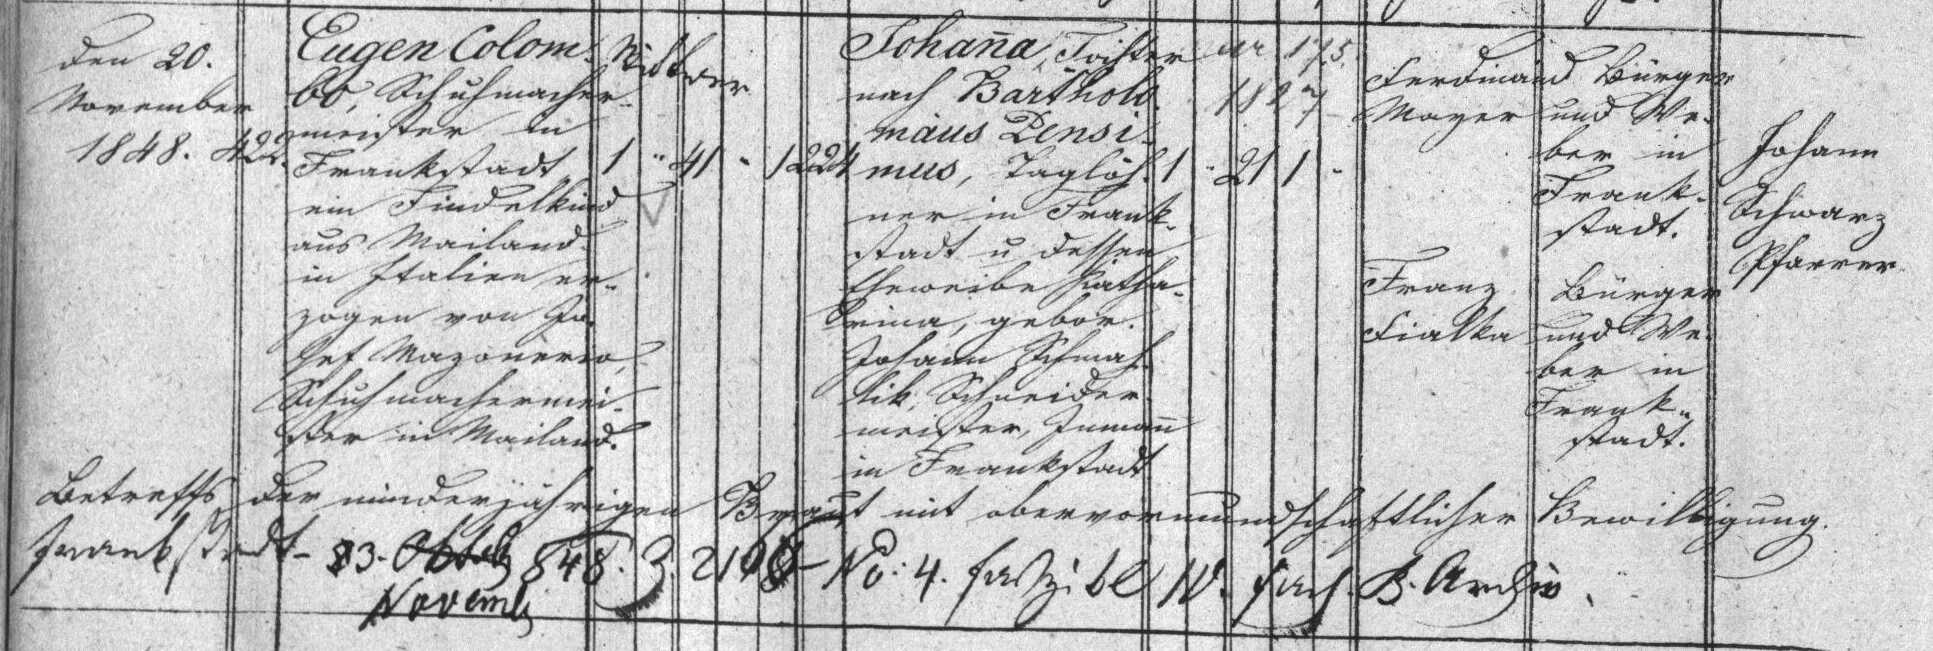 den 20.
November
1848. 422.
Eugen Colom-
bo, Schuhmacher-
meister in
Frankstadt,
ein Findelkind
aus Mailand
in Italien er-
zogen von Jo-
sef Mazoneria,
Schuhmachermei-
ster in Mailand.
Wittwer
1 " 41 " 1
224
Johanna, Tochter
nach Bartholo-
mäus Densi-
mus, Taglöh-
ner in Frank-
stadt u dessen
Eheweibe Katha-
rina, gebor.
Johann Schmah-
lik, Schneider-
meister, Inmann
in Frankstadt
175.
1827
1 " 21 1 "
Ferdinand
Mayer
Bürger
und We-
ber in
Frank-
stadt.
Franz
Fialka
Bürger
und We-
ber in
Frank-
stadt.
Johann
Schwarz
Pfarrer
Betreffs der minderjährigen Braut mit obervormundschaftlicher Bewilligung.
Frankstadt 848. Z. No: 4. Faszikel IV. Fach. B. Archiv.
Novemb